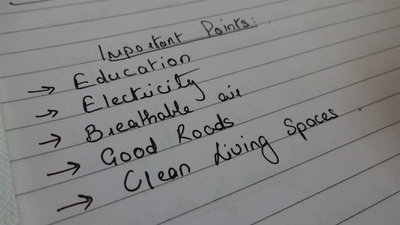 Important Points:
→ Education
→ Electricity
→ Breathable air
→ Good Roads
→ Clean Living Spaces.